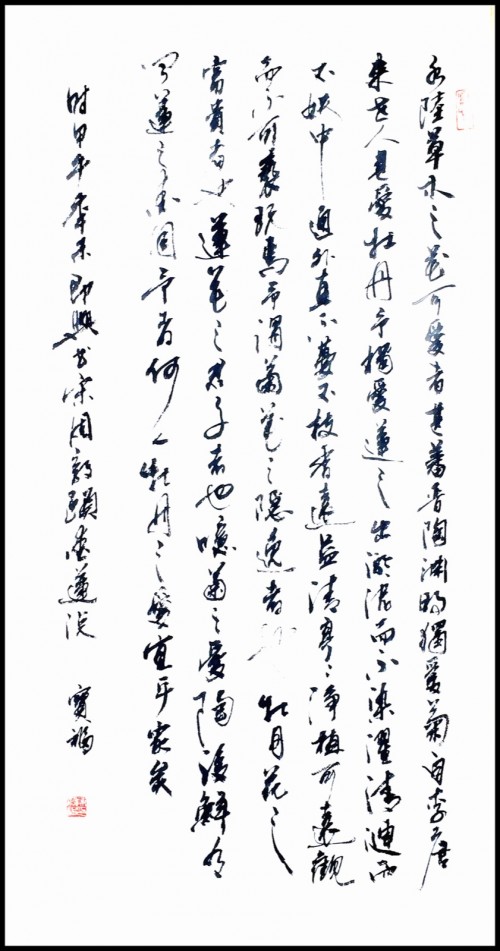 水陸草木之花可愛者甚蕃晋陶渊明獨愛菊自李唐
来世人甚愛牡丹予獨愛蓮之出淤泥而不染濯清漣而
不妖中通外直不蔓不枝香遠益清亭〻淨植可遠觀
而不可褻玩焉予謂菊花之隱逸者也 牡丹花之
富貴者也蓮花之君子者也噫菊之愛陶後鮮有
聞蓮之愛同予者何人牡丹之愛宜乎衆矣
时甲午春末即興书宋周敦頤愛蓮説 寶福